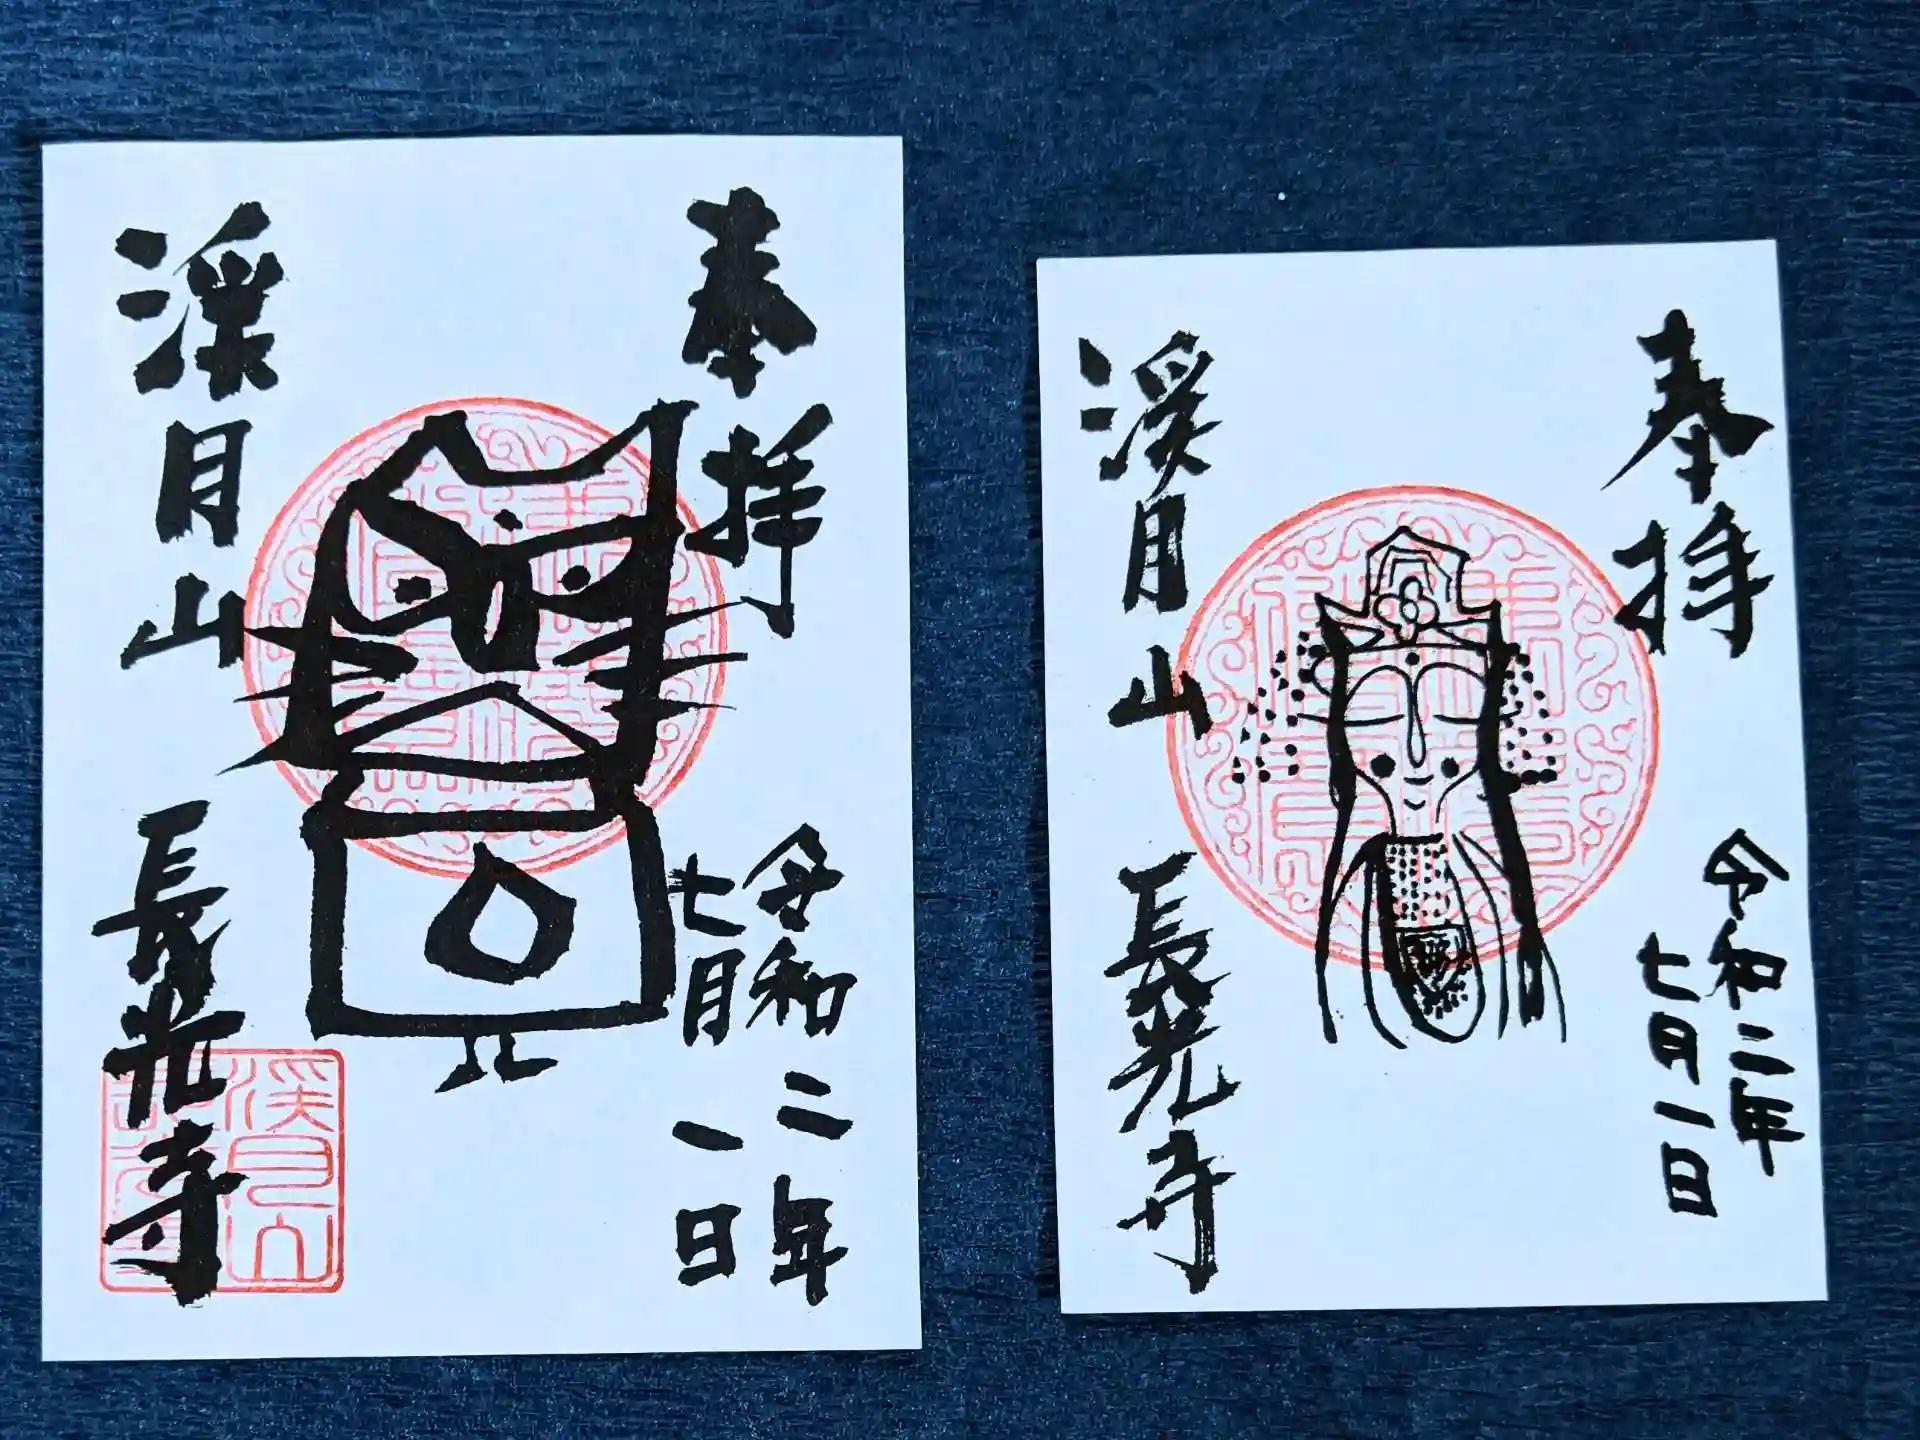 奉拝
令和二年
七月一日
渓月山 長光寺
奉拝
令和二年
七月一日
渓月山 長光寺